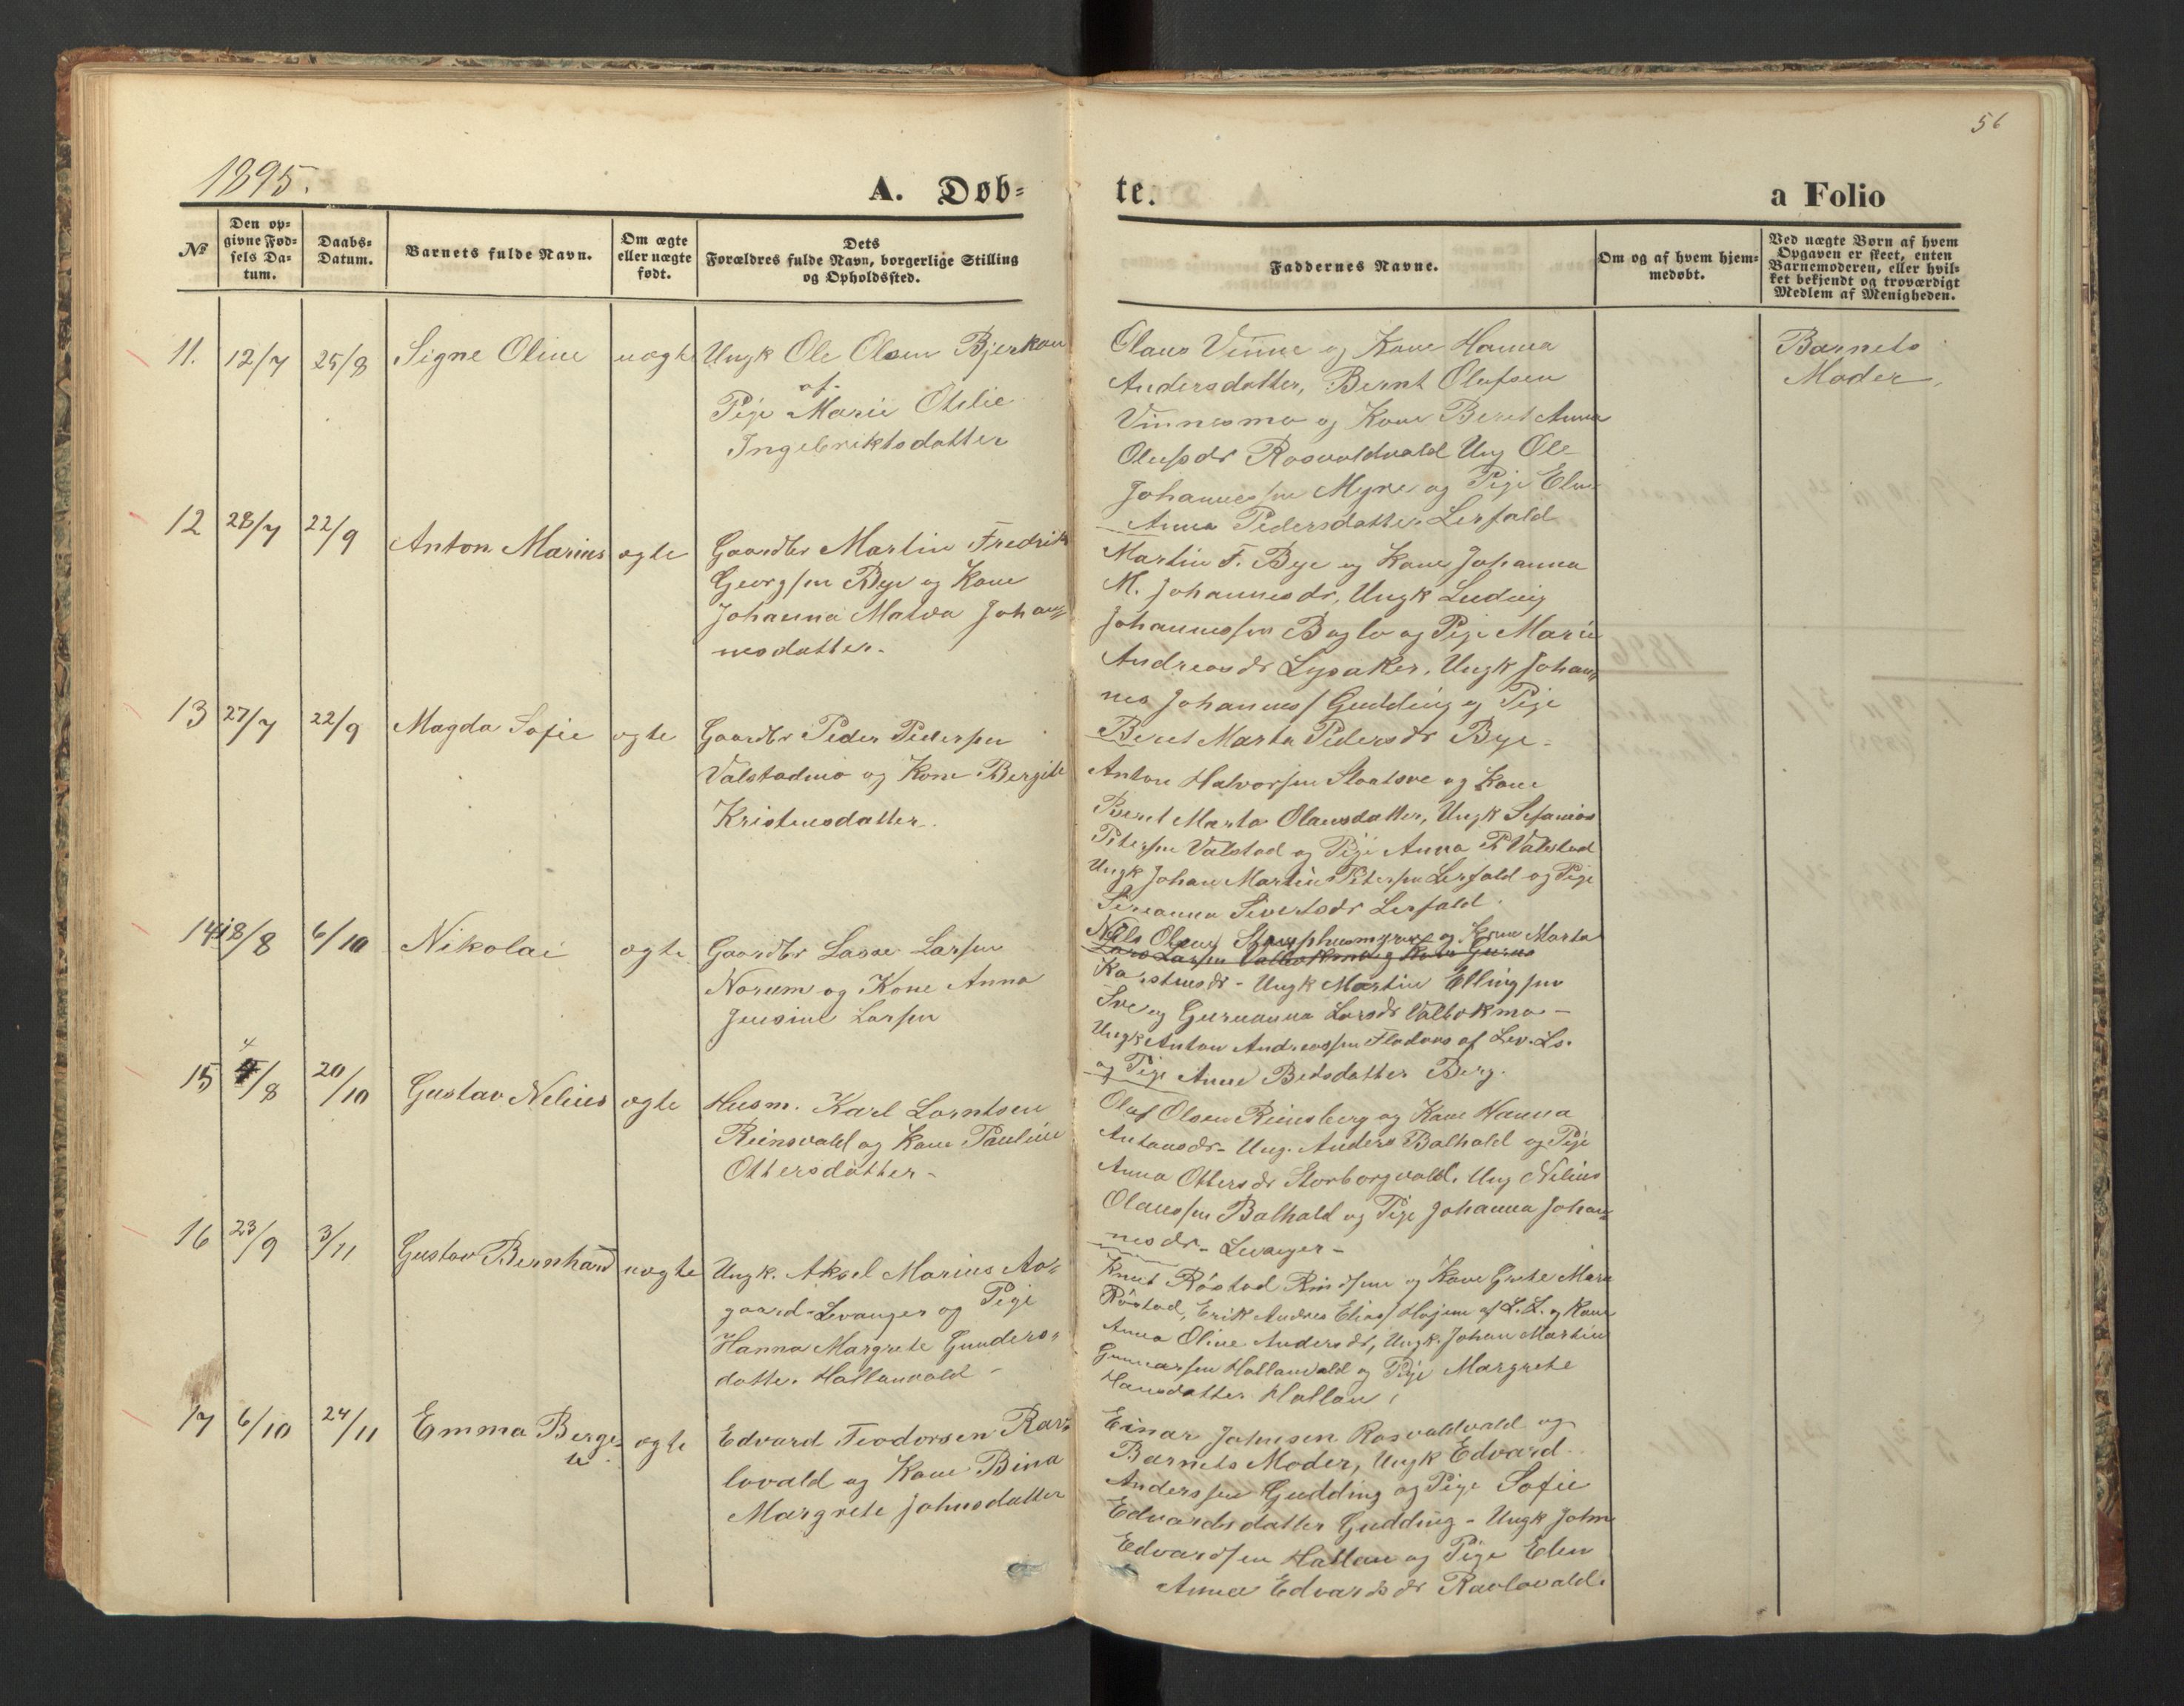 56
1895.
A. Døb=
te.
a Folio
№
Den op=
givne Fød=
sels Da=
tum.
Daabs=
Datum.
Barnets fulde Navn.
Om ægte
eller uægte
født.
Dets
Forældres fulde Navn, borgerlige Stilling
og Opholdssted.
Faddernes Navne.
Om og af hvem hjem=
medøbt.
Ved uægte Børn af hvem
Opgaven er skeet, enten
Barnemoderen, eller hvil=
ket bekjendt og troværdigt
Medlem af Menigheden.
11.
12/7
25/8
Signe Oline
uægte
Ungk Ole Olsen Bjerkan
af
Pige Marie Otilie
Ingebriktsdatter
Olaus Vinne og Kone Hanna
Andersdatter, Bernt Olufsen
Vinnesmo og Kone Beret Anna
Olufsdr Rosvoldvald Ung Ole
Johannessen Myre og Pige Elen
Anna Pedersdatter Lerfald
Barnets
Moder,
12
28/7
22/9
Anton Marius
ægte
Gaardbr Martin Fredrik
Georgsen Bye og Kone
Johanna Matea Johan=
nesdatter.
Martin F. Bye og Kone Johanna
M. Johannesdr, Ungk Ludvig
Johannessen Baglo og Pige Marie
Andreasdr Lysaker, Ungk Johan=
nes Johanness Gudding og Pige
Beret Marta Pedersdr Bye.
13
27/7
22/9
Magda Sofie
ægte
Gaardbr Peder Pedersen
Valstadmo og Kone Bergite
Kristensdatter.
Anton Halvorsen og Kone
Beret Marta Olausdatter, Ungk Sefanias
Petersen Valstad og Pige Anna P. Valstad
Ungk Johan Martin Petersen Lerfald og Pige
Sereanna Sivertsdr Lerfald.
14
18/8
6/10
Nikolai
ægte
Gaardbr Lasse Larsen
Norum og Kone Anna
Jensine Larsen
Nils Olsen og Kone Marta
Lars Larsen Valbekmo og Kone
Karstensdr - Ungk Martin Ellingsen
og Gurianna Larsdr Valbekmo -
Ungk Anton Andreassen af Lev. Ls.
og Pige Anne Berg.
15
4/8
20/10
Gustav Nelius
ægte
Husm. Karl Lorntsen
Reinsvald og Kone Pauline
Ottersdatter -
Oluf Olsen Reinsberg og Kone Hanna
Antonsdr - Ung. Anders Balhald og Pige
Anna Ottersdr Storborgvald. Ung Nelius
Olaussen Balhald og Pige Johanna Johan=
nesdr - Levanger -
16
23/9
3/11
Gustav Bernhard
uægte
Ungk. Aksel Marius Aa=
gaard Levanger og Pige
Hanna Margrete Gunders=
datter Hallanvald -
Knut Røstad og Kone Grete Marie
Røstad, Erik Andreas Elias Hojem af L. L. og Kone
Anna Oline Andersdr, Ungk. Johan Martin
Gunnarsen Hallanvald og Pige Margrete
Hansdatter Hallan,
17
6/10
24/11
Emma Berge=
te
ægte
Edvard Teodorsen Rav=
lovald og Kone Bina
Margrete Johnsdatter
Einar Johnsen Rosvoldvald og
Barnets Moder, Ungk Edvard
Anderssen Gudding og Pige Sofie
Edvardsdatter Gudding - Ungk John
Edvardsen Hallan og Pige Elen
Anna Edvardsdr Ravlovald.